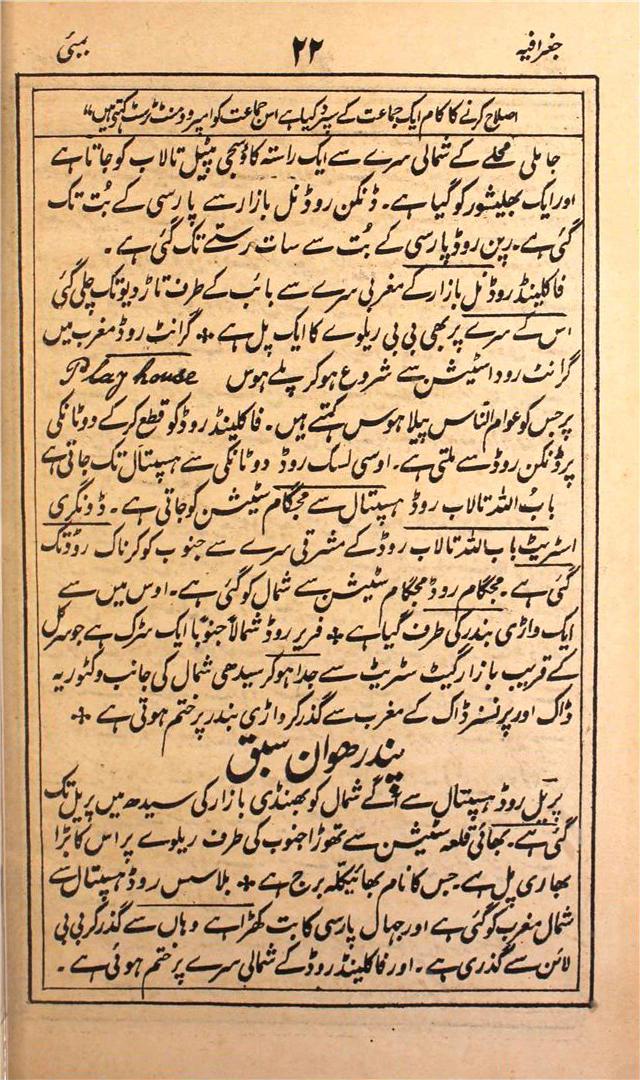 جغرافیہ ۲۲ بمبئی
اصلاح کرنے کا کام ایک جماعت کے سپرد کیا ہے اس جماعت کو امپروومنٹ ٹرسٹ کہتی ہیں"
جاملی محلے کے شمالی سرے سے ایک راستہ کاؤسجی پٹیل تالاب کو جاتا ہے
اور ایک بھلیشور کو گیا ہے۔ ڈنکن روڈ نل بازار سے پارسی کے بُت تک
گئی ہے۔ رپن روڈ پارسی کے بُت سے سات رستے تک گئی ہے۔
فاکلینڈ روڈ نل بازار کے مغربی سرے سے بائب کے طرف تاڑدیو تک چلی گئی
اس کے سرے پر بھی بی بی ریلوے کا ایک پل ہے ٭ گرانٹ روڈ مغرب میں
گرانٹ روڈ اسٹیشن سے شروع ہوکر پلے ہوس Play house
پر جس کو عوام النّاس پیلا ہوس کہتے ہیں۔ فاکلینڈ روڈ کو قطع کرکے دو ٹانکی
پر ڈنکن روڈ سے ملتی ہے۔ اوسی لسگ روڈ دو ٹانکی سے ہسپتال تک جاتی ہے
بابُ اللہ تالاب روڈ ہسپتال سے مجگام سٹیشن کو جاتی ہے۔ ڈونگری
اسٹریٹ باب اللہ تالاب روڈ کے مشرقی سرے سے جنوب کو کرناک روڈ تک
گئی ہے۔ مجگام روڈ مجگام سٹیشن سے شمال کو گئی ہے۔ اوس میں سے
ایک واڑی بندر کی طرف گیا ہے ٭ فریر روڈ شمالاً جنوباً ایک سڑک ہے جو سرکل
کے قریب بازار گیٹ سٹریٹ سے جدا ہوکر سیدھی شمال کی جانب وکٹوریہ
ڈاک اور پرنسز ڈاک کے مغرب سے گذر کر واڑی بندر پر ختم ہوتی ہے ٭
پندرھواں سبق
پریل روڈ ہسپتال سے آگے شمال کو بھنڈی بازار کی سیدھ میں پریل تک
گئی ہے۔ بھائی قلعہ سٹیشن سے تھوڑا جنوب کی طرف ریلوے پر اس کا بڑا
بھاری پل ہے جس کا نام بھائیکلہ برج ہے ٭ بلاسس روڈ ہسپتال سے
شمال مغرب کو گئی ہے اور جہاں پارسی کا بت کھڑا ہے وہاں سے گذر کر بی بی
لائن سے گذری ہے۔ اور فاکلینڈ روڈ کے شمالی سرے پر ختم ہوئی ہے۔